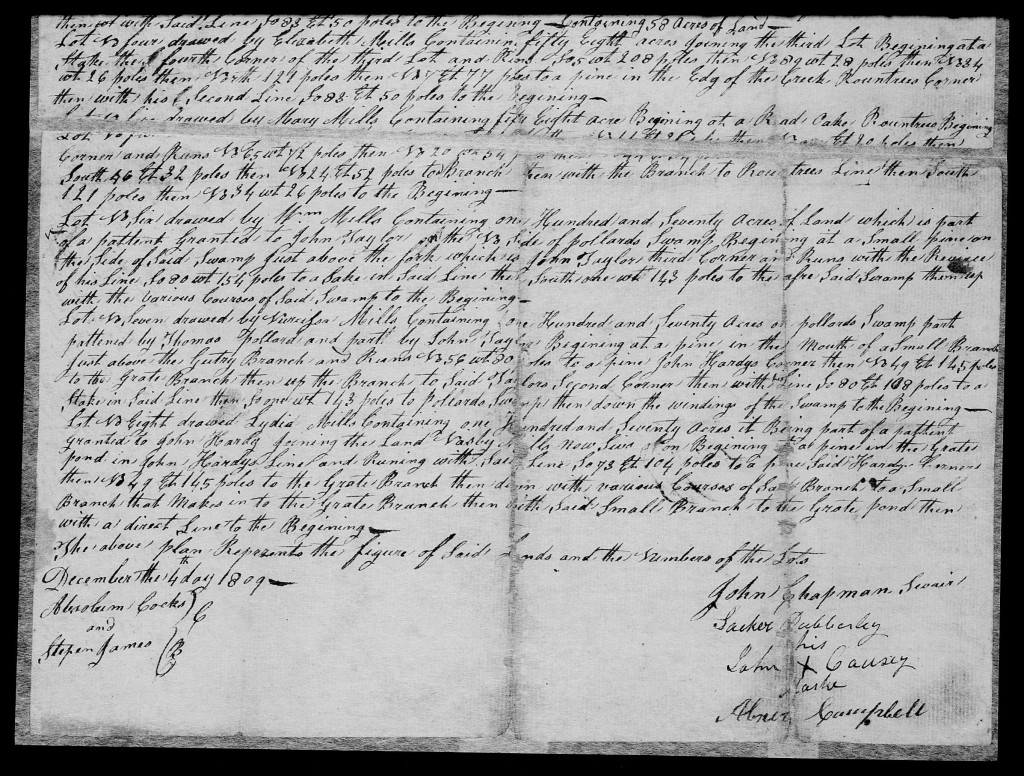 then with Said Line So 83 Et 50 poles to the Begining — Containing 58 Acres of Land —
Lot No four drawed by Elizabeth Mills Containen fifty Eight acres Joining the third Lot Begining at a
Stake the fourth Corner of the third Lot and Runs So 5 wt 208 poles then No 89 wt 28 poles then No 34
wt 26 poles then 121 poles then No 7 Et 77 poles to a pine in the Edg of the Creek Rountrees Corner
then with his Second Line So 83 Et 50 poles to the Begining —
drawed by Mary Mills Containing fifty Eight acre Begining at a Read Oake Rountrees Begining
Corner and Runs No 65 wt 72 poles then No 20
South 56 Et 32 poles then No 24 Et 52 poles to Branch then with the Branch to Rountrees Line then South
121 poles then No 34 wt 26 poles to the Begining —
Lot No Six drawed by Wm Mills Containing one Hundred and Seventy Acres of Land which is part
of a pattent Granted to John Taylor on the No Side of pollards Swamp Begening at a Small pine on
the Side of Said Swamp Just above the fork which is John Taylors third Corner and Runs with the Reverce
of his Line So 80 wt 154 poles to a Sake in Said Line the South one wt 143 poles to the afre Said Swamp then up
with the Various Courses of Said Swamp to the Begining —
Lot No Seven drawed by Mills Containing one Hundred and Seventy Acres on pollards Swamp part
pattend by Thomas Pollard and part by John Taylor Begening at a pine in the Mouth of a Small Branch
Just above the Gutry Branch and Runs No 56 wt 80 poles to a pine John Hardys Corner then No 49 Et 145 poles
to the Grate Branch then up the Branch to Said Taylors Second Corner then with his Line So 80 Et 108 poles to a
Stake in Said Line then So one wt 143 poles to Pollards Swamp then down the windings of the Swamp to the Begening —
Lot No Eight drawed Lydia Mills Containing one Hundred and Seventy Acres it Being part of a pattent
Granted to John Hardy Joining the Land Mills Now Lives on Begining at a pine in the Grate
pond in John Hardys Line and Runing with Said Line So 73 Et 104 poles to a pine Said Hardys Corner
then No 49 Et 145 poles to the Grate Branch then down with various Courses of Said Branch to a Small
Branch that Makes in to the Grate Branch then with Said Small Branch to the Grate pond then
with a direct Line to the Begening —
The above plan Represents the figure of Said Lands and the Numbers of the Lots
December the 4th day 1809 —
John Chapman Svair
Absolum Cocks
and
Stepen James
C
B
Sacker Dubberley
his
John X Causey
Marke
Abner Campbell